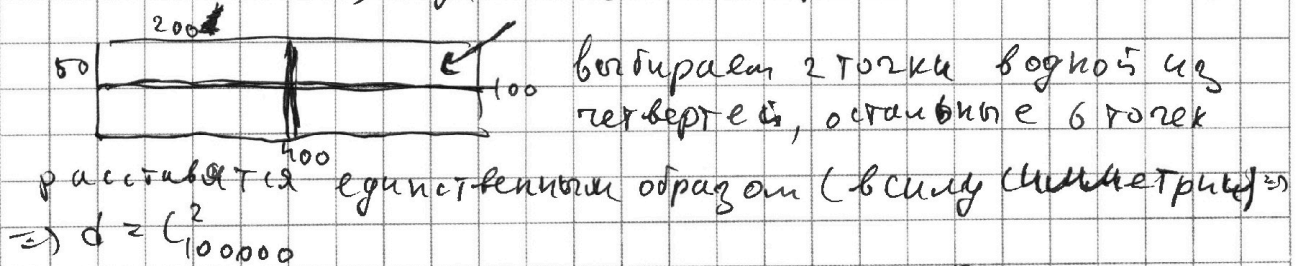 200
50
100
400
выбираем 2 точки в одной из
четвертей, остальные 6 точек
расставятся единственным образом (в силу симметрии) =>
=> d = C²₁₀₀₀₀₀